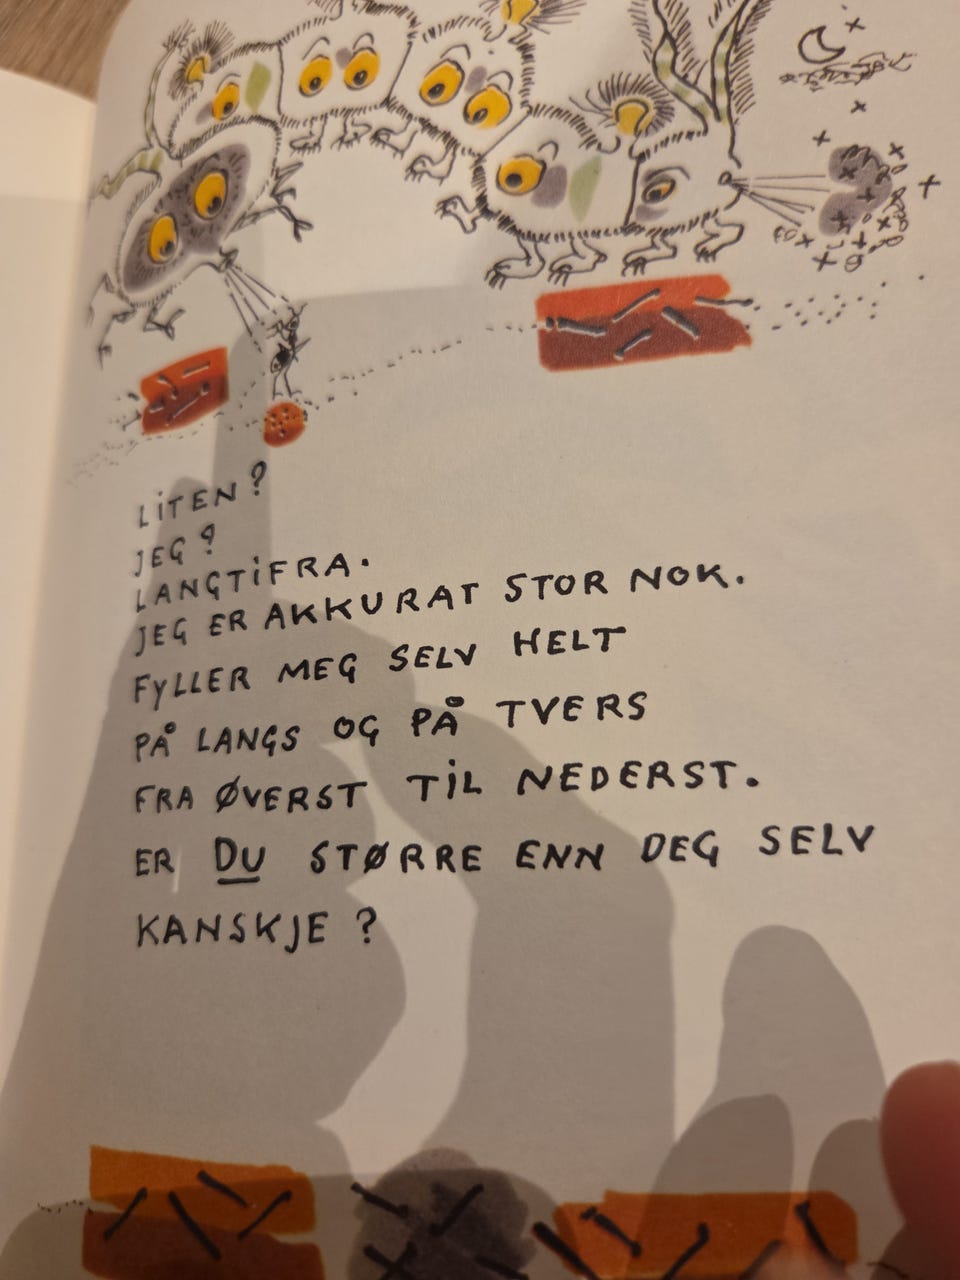 LITEN?
JEG?
LANGTIFRA.
JEG ER AKKURAT STOR NOK.
FYLLER MEG SELV HELT
PÅ LANGS OG PÅ TVERS
FRA ØVERST TIL NEDERST.
ER DU STØRRE ENN DEG SELV
KANSKJE?